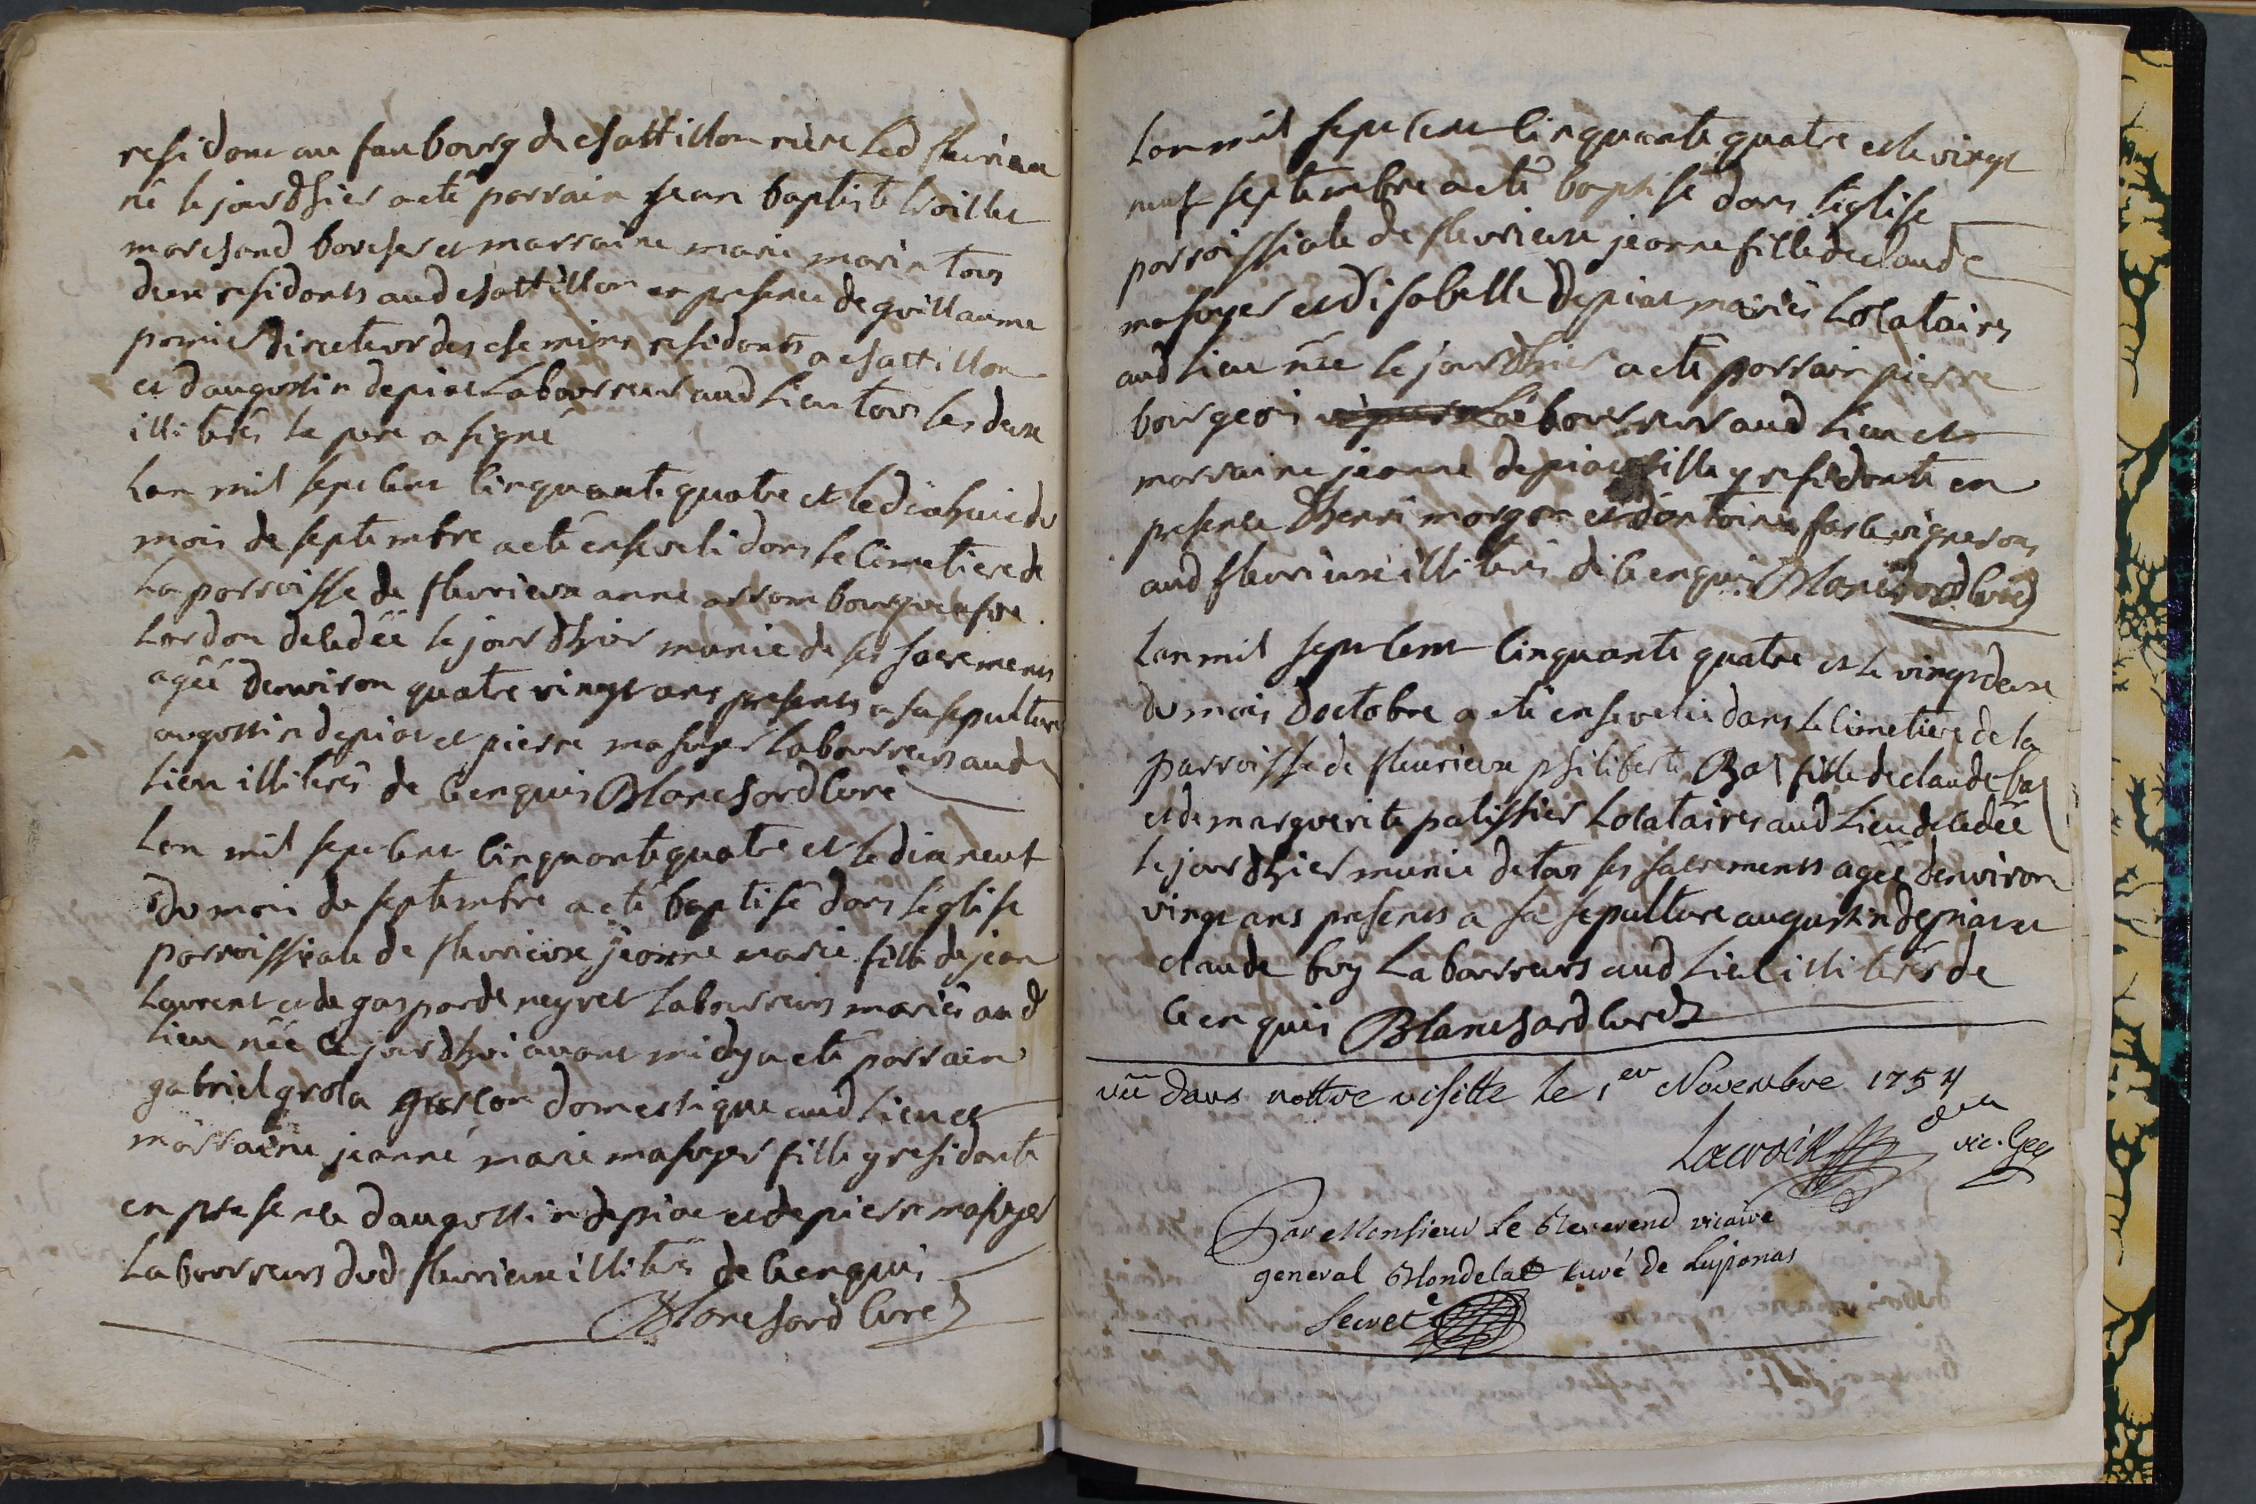 residont au faubourg de chattillon riere led fleurieux
né le jourdhier a eté parrain jean baptiste
marchand boucher et marraine marie marin tous
deux residonts aud chattillon en presence de guillaume
pomier directeur des chemins residonts a chattillon
et daugustin depiat laboureur aud lieu tous les deux
illiterés le pere a signé
Lan mil sept cent cinquante quatre et le dixhuit du
mois de septembre a eté enseveli dans le cimetiere de
la parroisse de fleurieux anne
decedée le jourdhier munie de ses sacrements
agée denviron quatre vingt ans presents a sa sepulture
augustin depiat et pierre masuyer laboureurs aud
lieu illiterés de ce enquis Blanchard curé
Lan mil sept cent cinquante quatre et le dix neuf
du mois de septembre a eté baptisé dans leglise
parroissiale de fleurieux jeanne marie fille de jean
laurent et de gasparde neyret laboureurs mariés aud
lieu née ce jourdhui avant midy a eté parrain
gabriel grola garcon domestique aud lieu et
marraine jeanne marie masuyer fille y residante
en presence daugustin depiat et de pierre masuyer
laboureurs dud fleurieux illiterés de ce enquis
Blanchard curé
Lan mil sept cent cinquante quatre et le vingt
neuf septembre a eté baptisé dans leglise
parroissiale de fleurieux jeanne fille de claude
masuyer et disabelle depiat mariés locataires
aud lieu née le jourdhier a eté parrain pierre
bourgeois laboureur aud lieu et
marraine jeanne depiat fille y residante en
presence dhenri morgon et dantoine farle vignerons
aud fleurieux illiterés de ce enquis Blanchard curé
Lan mil sept cent cinquante quatre et le vingt deux
du mois doctobre a eté ensevelie dans le cimetiere de la
parroisse de fleurieux philiberte Bas fille de claude bas
et de marguerite patissier locataires aud lieu decedée
le jourdhier munie de tous ses sacrements agée denviron
vingt ans presents a sa sepulture augustin depiat et
claude buy laboureurs aud lieu illiterés de
ce enquis Blanchard curé
vû dans nottre visitte le 1er Novembre 1754
Lacroix vic. gen
Par Monsieur le Reverend vicaire
general Blondelat curé de Luponas
Secret.e